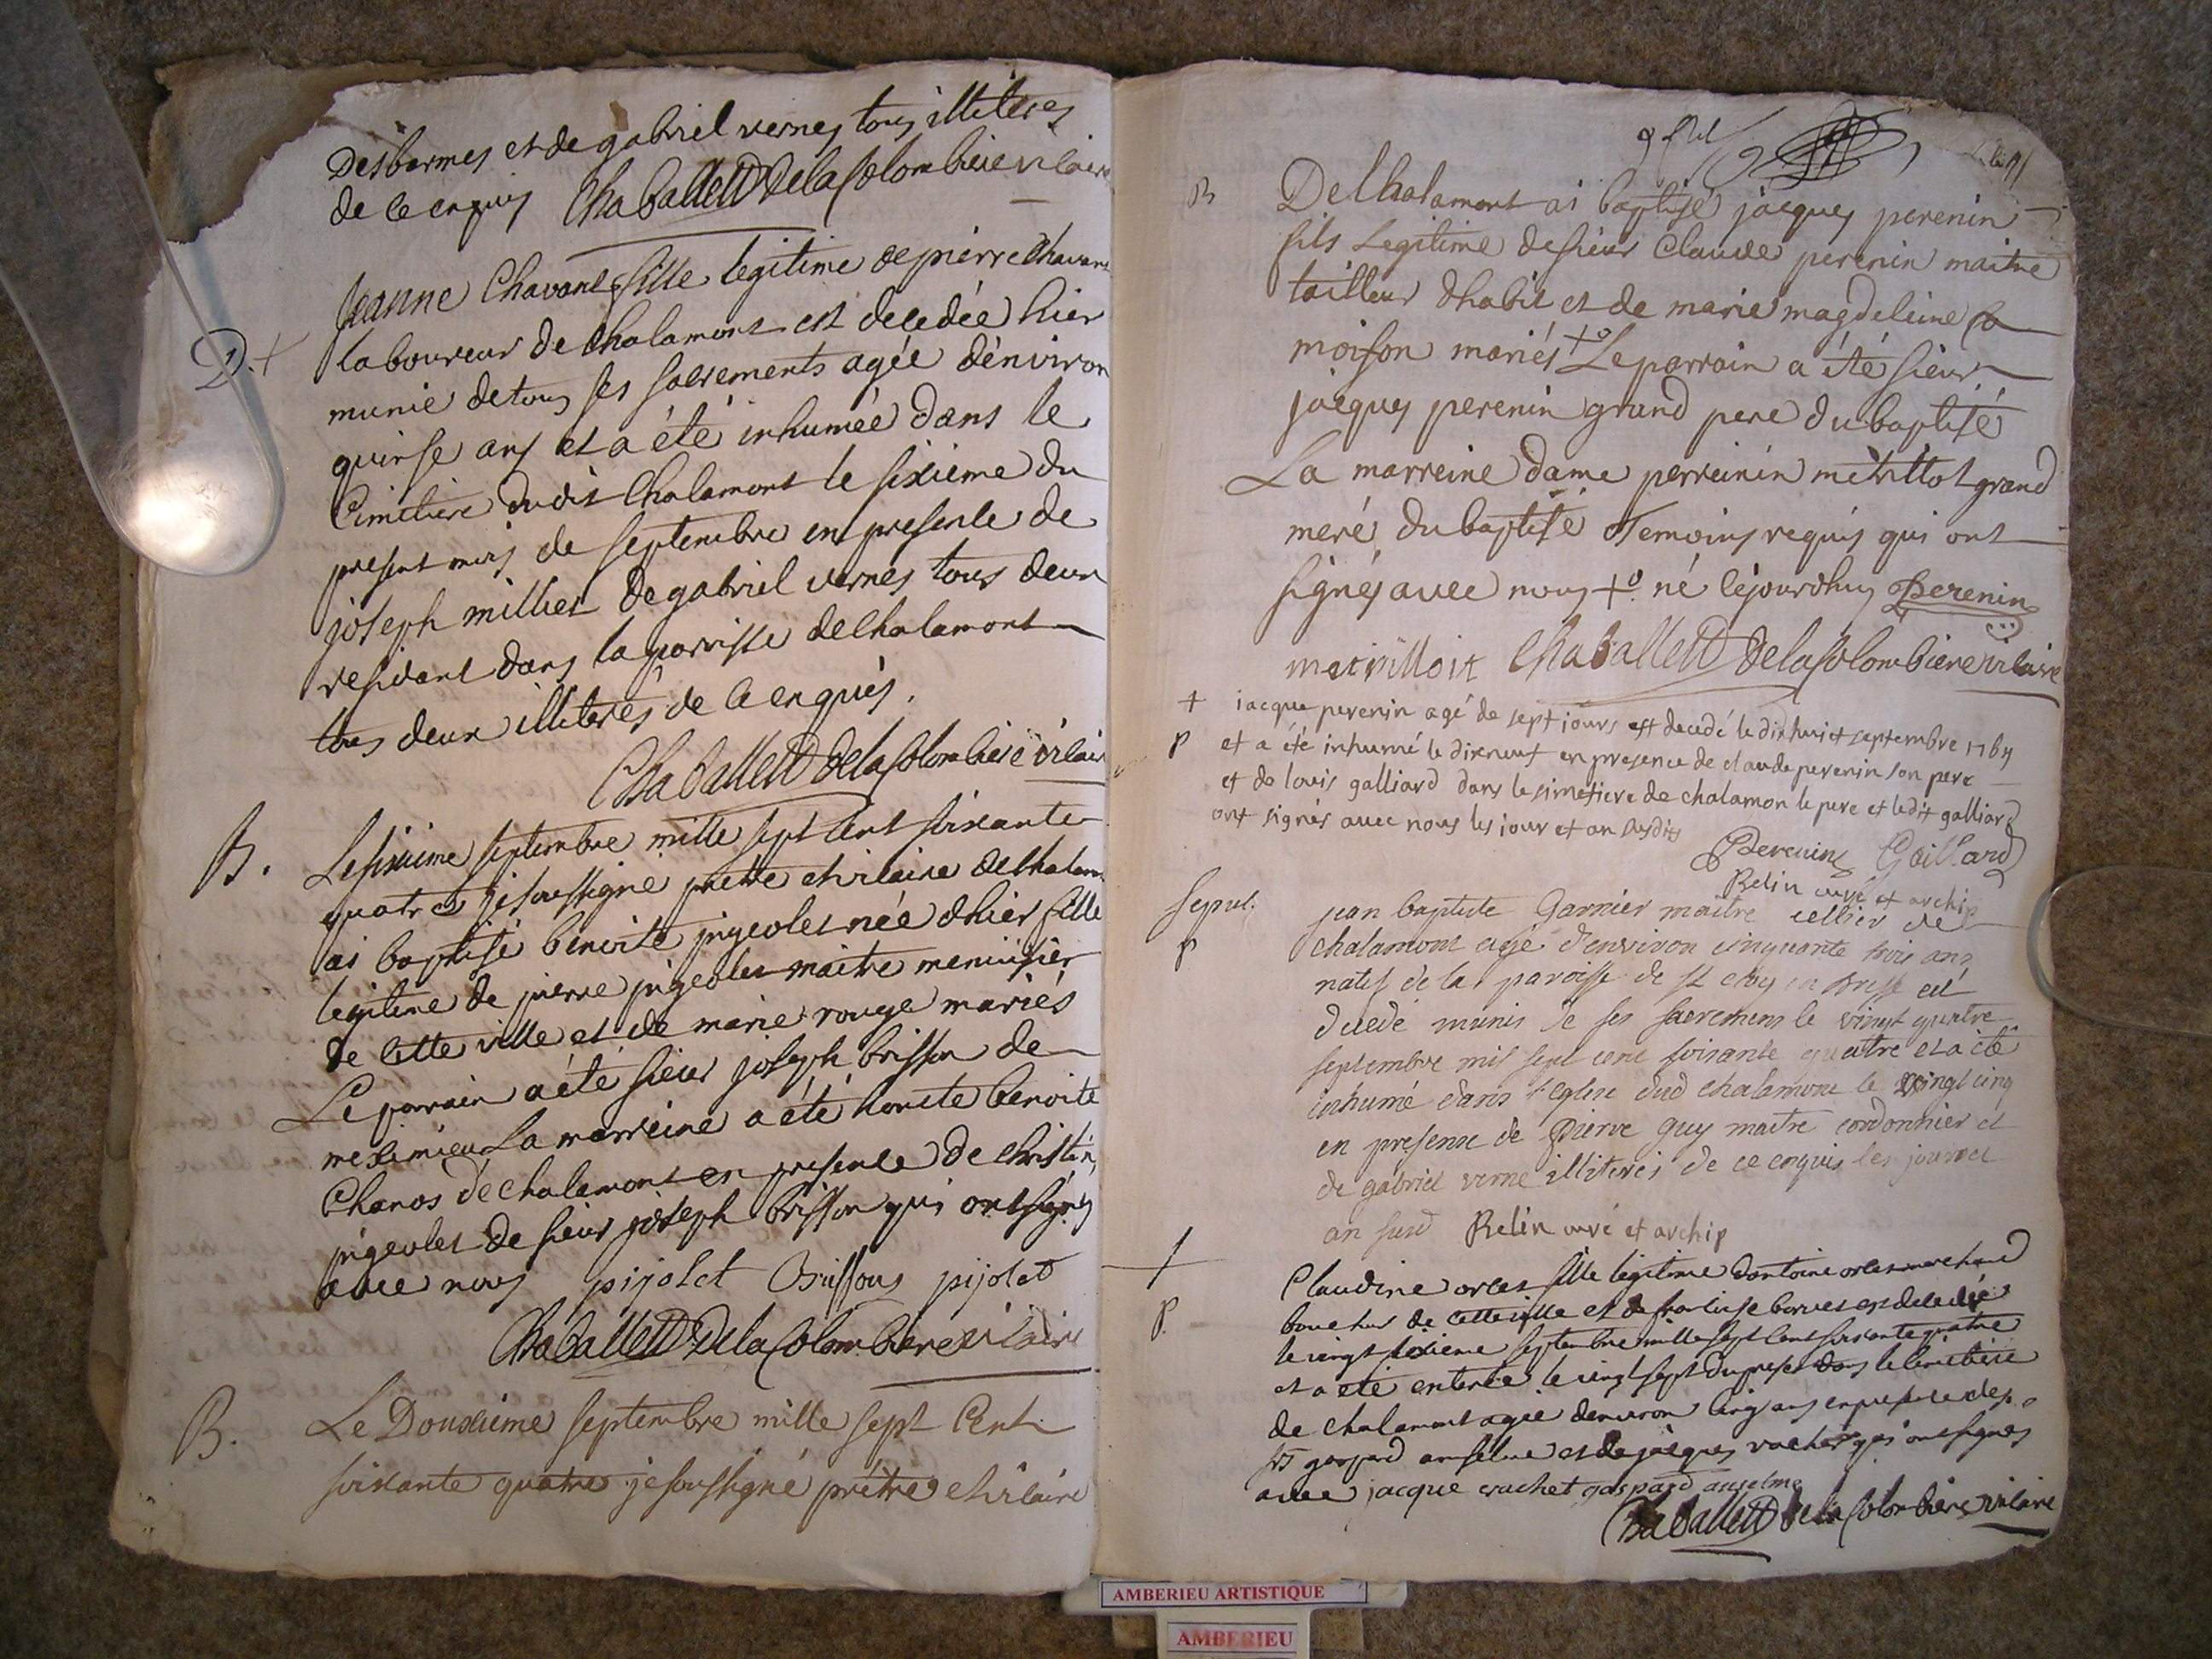 Desbarmes et de gabriel vernes tous illiteres
de ce enquis Chaballett De la Colombiere vicaire
D.+
Jeanne Chavant fille legitime de pierre Chavant
laboureur de Chalamont est decedée hier
munie de tous ses sacrements agée dénviron
quinse ans et a été inhumée dans le
Cimetiere dudit Chalamont le sixieme du
present mois de septembre en presence de
joseph millet de gabriel vernes tous deux
residant dans la parroisse de Chalamont
tous deux illiterés de ce enquis.
Chaballett de la Colombiere vicaire
B.
Le sixieme septembre mille sept Cent soixante
quatre je soussigné prêtre et vicaire de Chalamont
ai baptisé benoite pigeolet née d'hier fille
legitime de pierre pigeolet maitre menuisier
de Cette ville et de marie rouge mariés
Le parrain a été sieur joseph brisson de
meximieu La marreine a été honete benoite
Chanos de chalamont en presence de Christin
pigeolet de sieur joseph brisson qui ont signés
avec nous pijolet Brissons pijolet
Chaballett De la Colombiere vicaire
B.
Le Douxieme septembre mille sept Cent
soixante quatre je soussigné prêtre et vicaire
B
De Chalamont ai baptisé jacques perenin
fils Legitime de sieur Claude perenin maitre
tailleur d'habit et de marie magdeleine
moison mariés +o Le parrain a été sieur
jacques perenin grand pere du baptisé
La marreine dame perreinin
grand
meré du baptisé Temoins requis qui ont
signés avec nous +o né cejourdhuy Perenin
Chaballett De la Colombiere vicaire
+
iacque perenin agé de sept iours est decedé le dixhuit septembre 1764
p
et a été inhumé le dixneuf en presence de claude perenin son pere
et de louis galliard dans le simetiere de chalamon le pere et ledit galliard
ont signés avec nous les iour et an susdits
Perenin Gaillard
Relin curé et archip
sepul.
p
jean baptiste Garnier maitre cellier de
chalamont agé d'environ cinquante trois ans
natif de la paroisse de st eloy en bresse est
décedé munis de ses sacremens le vingt quatre
septembre mil sept cent soixante quatre et a été
inhumé dans l'Eglise dud chalamont le vingt cinq
en presence de Pierre Guy maitre cordonnier et
de gabriel verne illiterés de ce enquis les jour et
an susd Relin curé et archip
+
p.
Claudine orlet fille legitime d'antoine orlet marchand
boucher de cette ville et de francoise borves est decedée
le vingt sixieme septembre mille sept Cent soixante quatre
et a été enterrée le vingt sept du present dans le Cimetiere
de Chalamont agée denviron Cinq ans en presence de
srs gaspard anselme et de jacques vachet qui ont signés
avec jacque vachet gaspard anselme
Chaballett de la Colombiere vicaire
AMBERIEU ARTISTIQUE
AMBERIEU